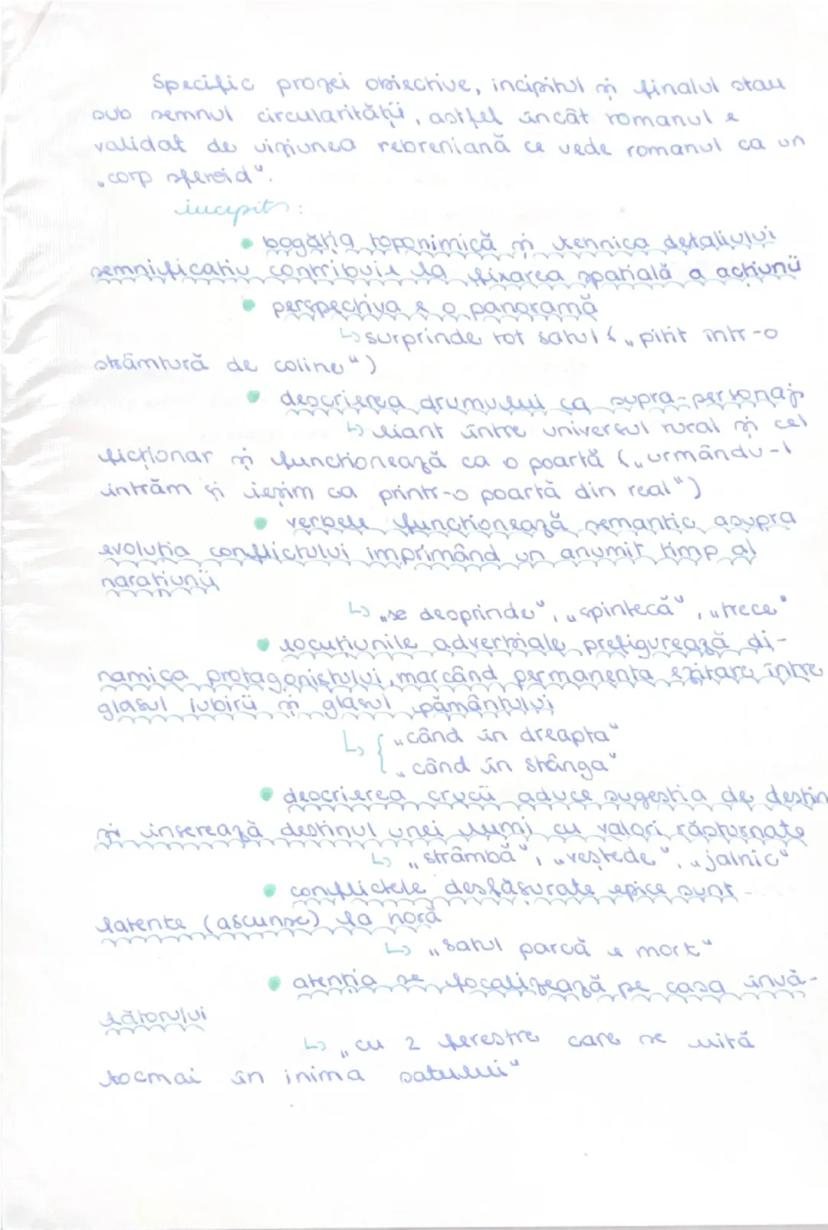 Specific prozei obiective, incipitul și finalul stau
sub semnul circularității, astfel încât romanul e
validat de viziunea rebreniană ce vede romanul ca un
„corp sferoid".
incipit:
• bogăția toponimică și tehnica detaliului
semnificativ contribuie la fixarea spatială a acțiunii
• perspectiva e o panoramă
↳ surprinde tot satul („pitit într-o
strâmtură de coline")
• descrierea drumului ca supra-personaj
↳ liant între universul rural și cel
ficționar și funcționează ca o poartă („urmându-l
intrăm și ieșim ca printr-o poartă din real")
• verbele funcționează semantic asupra
evoluția conflictului imprimând un anumit timp al
narațiunii
↳ „se desprinde", „spintecă", „trece"
• locuțiunile adverbiale prefigurează di-
namica protagonistului, marcând permanenta ezitare între
glasul iubirii și glasul pământului
↳ { „când în dreapta"
„când în stânga"
• descrierea crucii aduce sugestia de destin
și inserează destinul unei lumi cu valori răsturnate
↳ „strâmbă", „veștede", „jalnic"
• conflictele desfășurate epice sunt
latente (ascunse) la horă
↳ „satul parcă e mort"
• atenția se focalizează pe casa învă-
țătorului
↳ „cu 2 ferestre care se uită
tocmai în inima satului"